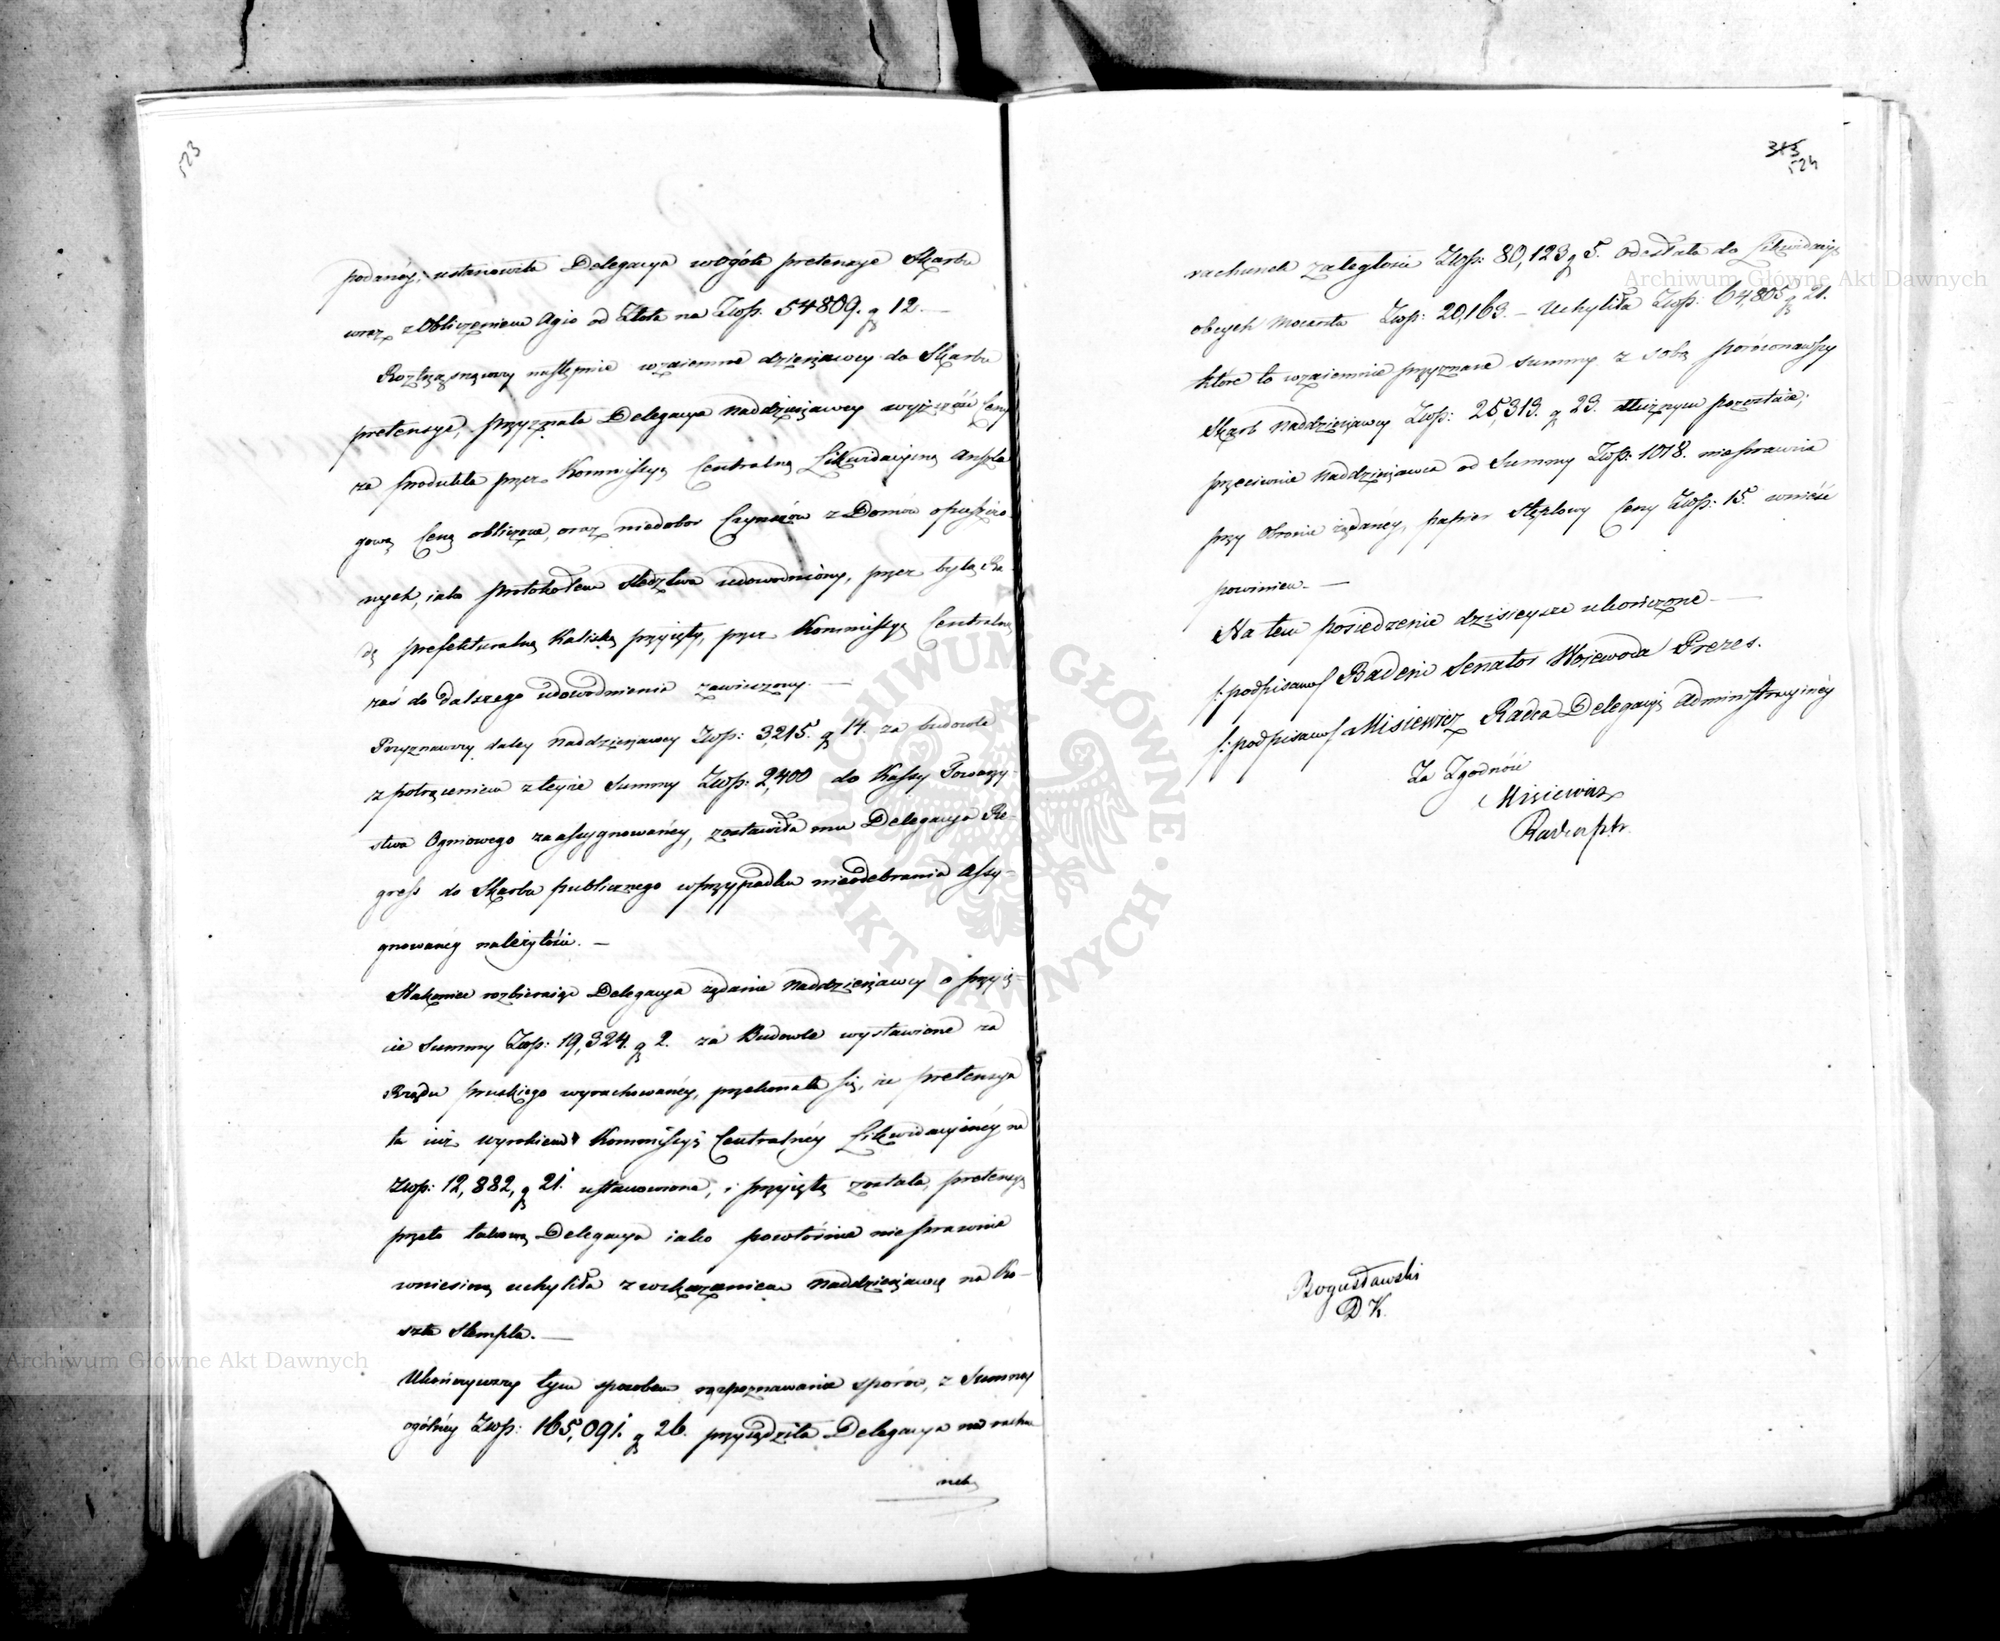 523
podanéy, ustanowiła Delegacya wogóle pretensye Skarbu
wraz z obliczeniem Agio od Złota na Złoß: 54809. g 12. —
Roztrząsnąwszy następnie wzaiemne dzierżawcy do Skarbu
pretensye, przyznała Delegacya Naddzierżawcy wyższość Ceny
za produkta przez Kommißyą Centralną Likwidacyiną Anszla
gową Ceną obliczone, oraz niedobor Czynszów z Domów opuszczo
nych, iako protokołem śledztwa udowodniony, przez byłą Ra
dę prefekturalną Kaliską przyięty, przez Kommißyą Centralną
zaś do dalszego udowodnienia zawieszony. —
Przyznawszy daley Naddzierżawcy Złoß: 3,215. g 14. za budowle
z potrąceniem z teyże Summy Złoß: 2,400 do Kaßy Towarzy-
stwa Ogniowego zaaßygnowanéy, zostawiła mu Delegacya Re-
greß do Skarbu publicznego w przypadku nieodebrania Aßy-
gnowanéy należytości. —
Nakoniec rozbieraiąc Delegacya żądanie Naddzierżawcy o przyię-
cie Summy Złoß: 19,324. g 2. za Budowle wystawione za
Rządu pruskiego wyrachowanéy, przekonała się, że pretensya
ta iuż wyrokiem Kommißyi Centralnéy Likwidacyinéy na
Złoß: 12,882, g 21. ustanowiona, i przyiętą została, pretensyą
przeto takową Delegacya iako powtórnie nieprawnie
wniesioną uchyliła z wskazaniem Naddzierżawcy na Ko-
szta Stempla. —
Ukończywszy tym sposobem rozpoznawanie sporów, z Summy
ogólnéy Złoß: 165,091. g 26. przysądziła Delegacya na rachu
nek
313
524
rachunek zaległości Złoß: 80,123 g 5. odesłała do Likwidacyi
obcych Mocarstw Złoß: 20,163. — Uchyliła Złoß: 64,805 g 21.
które to wzaiemnie przyznane summy z sobą porównawszy
Skarb Naddzierżawcy Złoß: 25,313. g 23. dłużnym pozostaie,
przeciwnie Naddzierżawca od Summy Złoß: 1078. nieprawnie
przy Obronie żądanéy, papier Stęplowy Ceny Złoß: 15. wnieść
powinien. —
Na tem posiedzenie dzisieysze ukończone. —
/:podpisano/ Badeni Senator Woiewoda Prezes.
/:podpisano/ Misiewicz Radca Delegacyi Administracyinéy
Za Zgodność
Misiewicz
Bogusławski
D K.
Archiwum Główne Akt Dawnych
Archiwum Główne Akt Dawnych
ARCHIWUM GŁÓWNE · AKT DAWNYCH ·